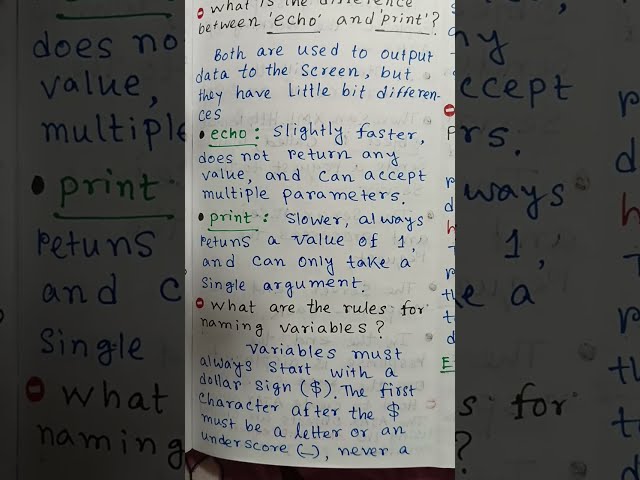 what is the difference
between 'echo' and 'print'?
Both are used to output
data to the screen, but
they have Little bit differen-
ces
• echo: slightly faster,
does not return any
value, and can accept
multiple parameters.
• print: slower, always
retuns a value of 1,
and can only take a
single argument.
what are the rules for
naming variables?
variables must
always start with a
dollar sign ($). The first
character after the $
must be a letter or an
underscore (_), never a